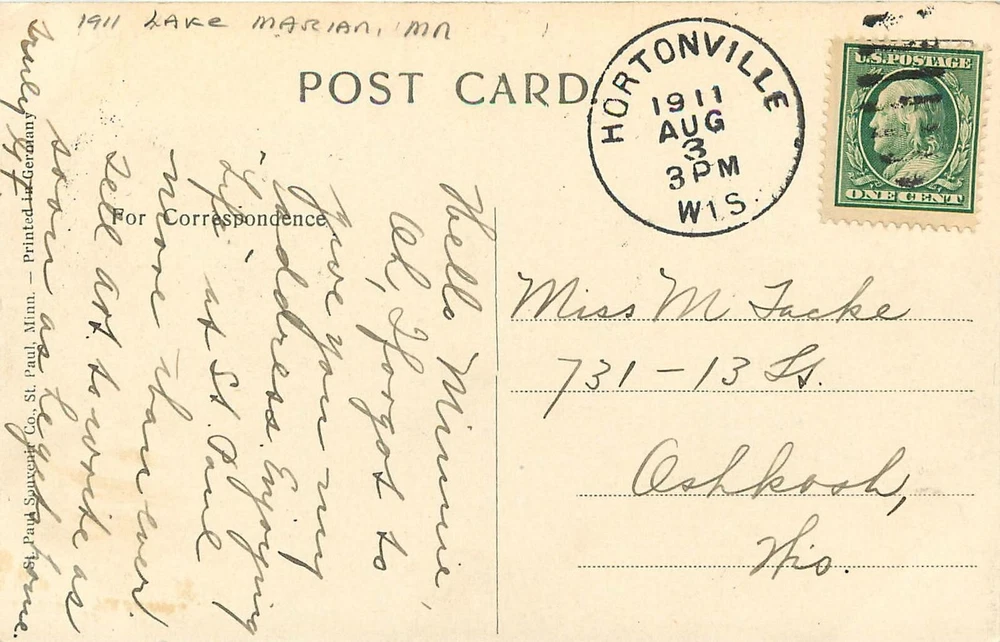 1911 LAKE MARIAN, MN
POST CARD
HORTONVILLE
1911
AUG
3
3PM
WIS.
U.S. POSTAGE
ONE CENT
For Correspondence
Hello Minnie,
Oh, I forgot to
give you my
address. Enjoying
"Life" at St. Paul
more than ever.
Tell art to write as
soon as he gets home.
Truly yf
Miss M Tacke
731 - 13 St.
Oshkosh,
Wis.
St. Paul Souvenir Co., St. Paul, Minn. — Printed in Germany